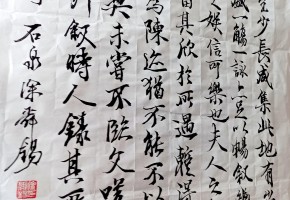 至少長咸集此地有
盛一觴一詠亦足以暢敘
娛信可樂也夫人之
當其欣於所遇輒得
為陳迹猶不能不以
契未嘗不臨文嗟
列敘時人錄其所
石泉徐舜錫